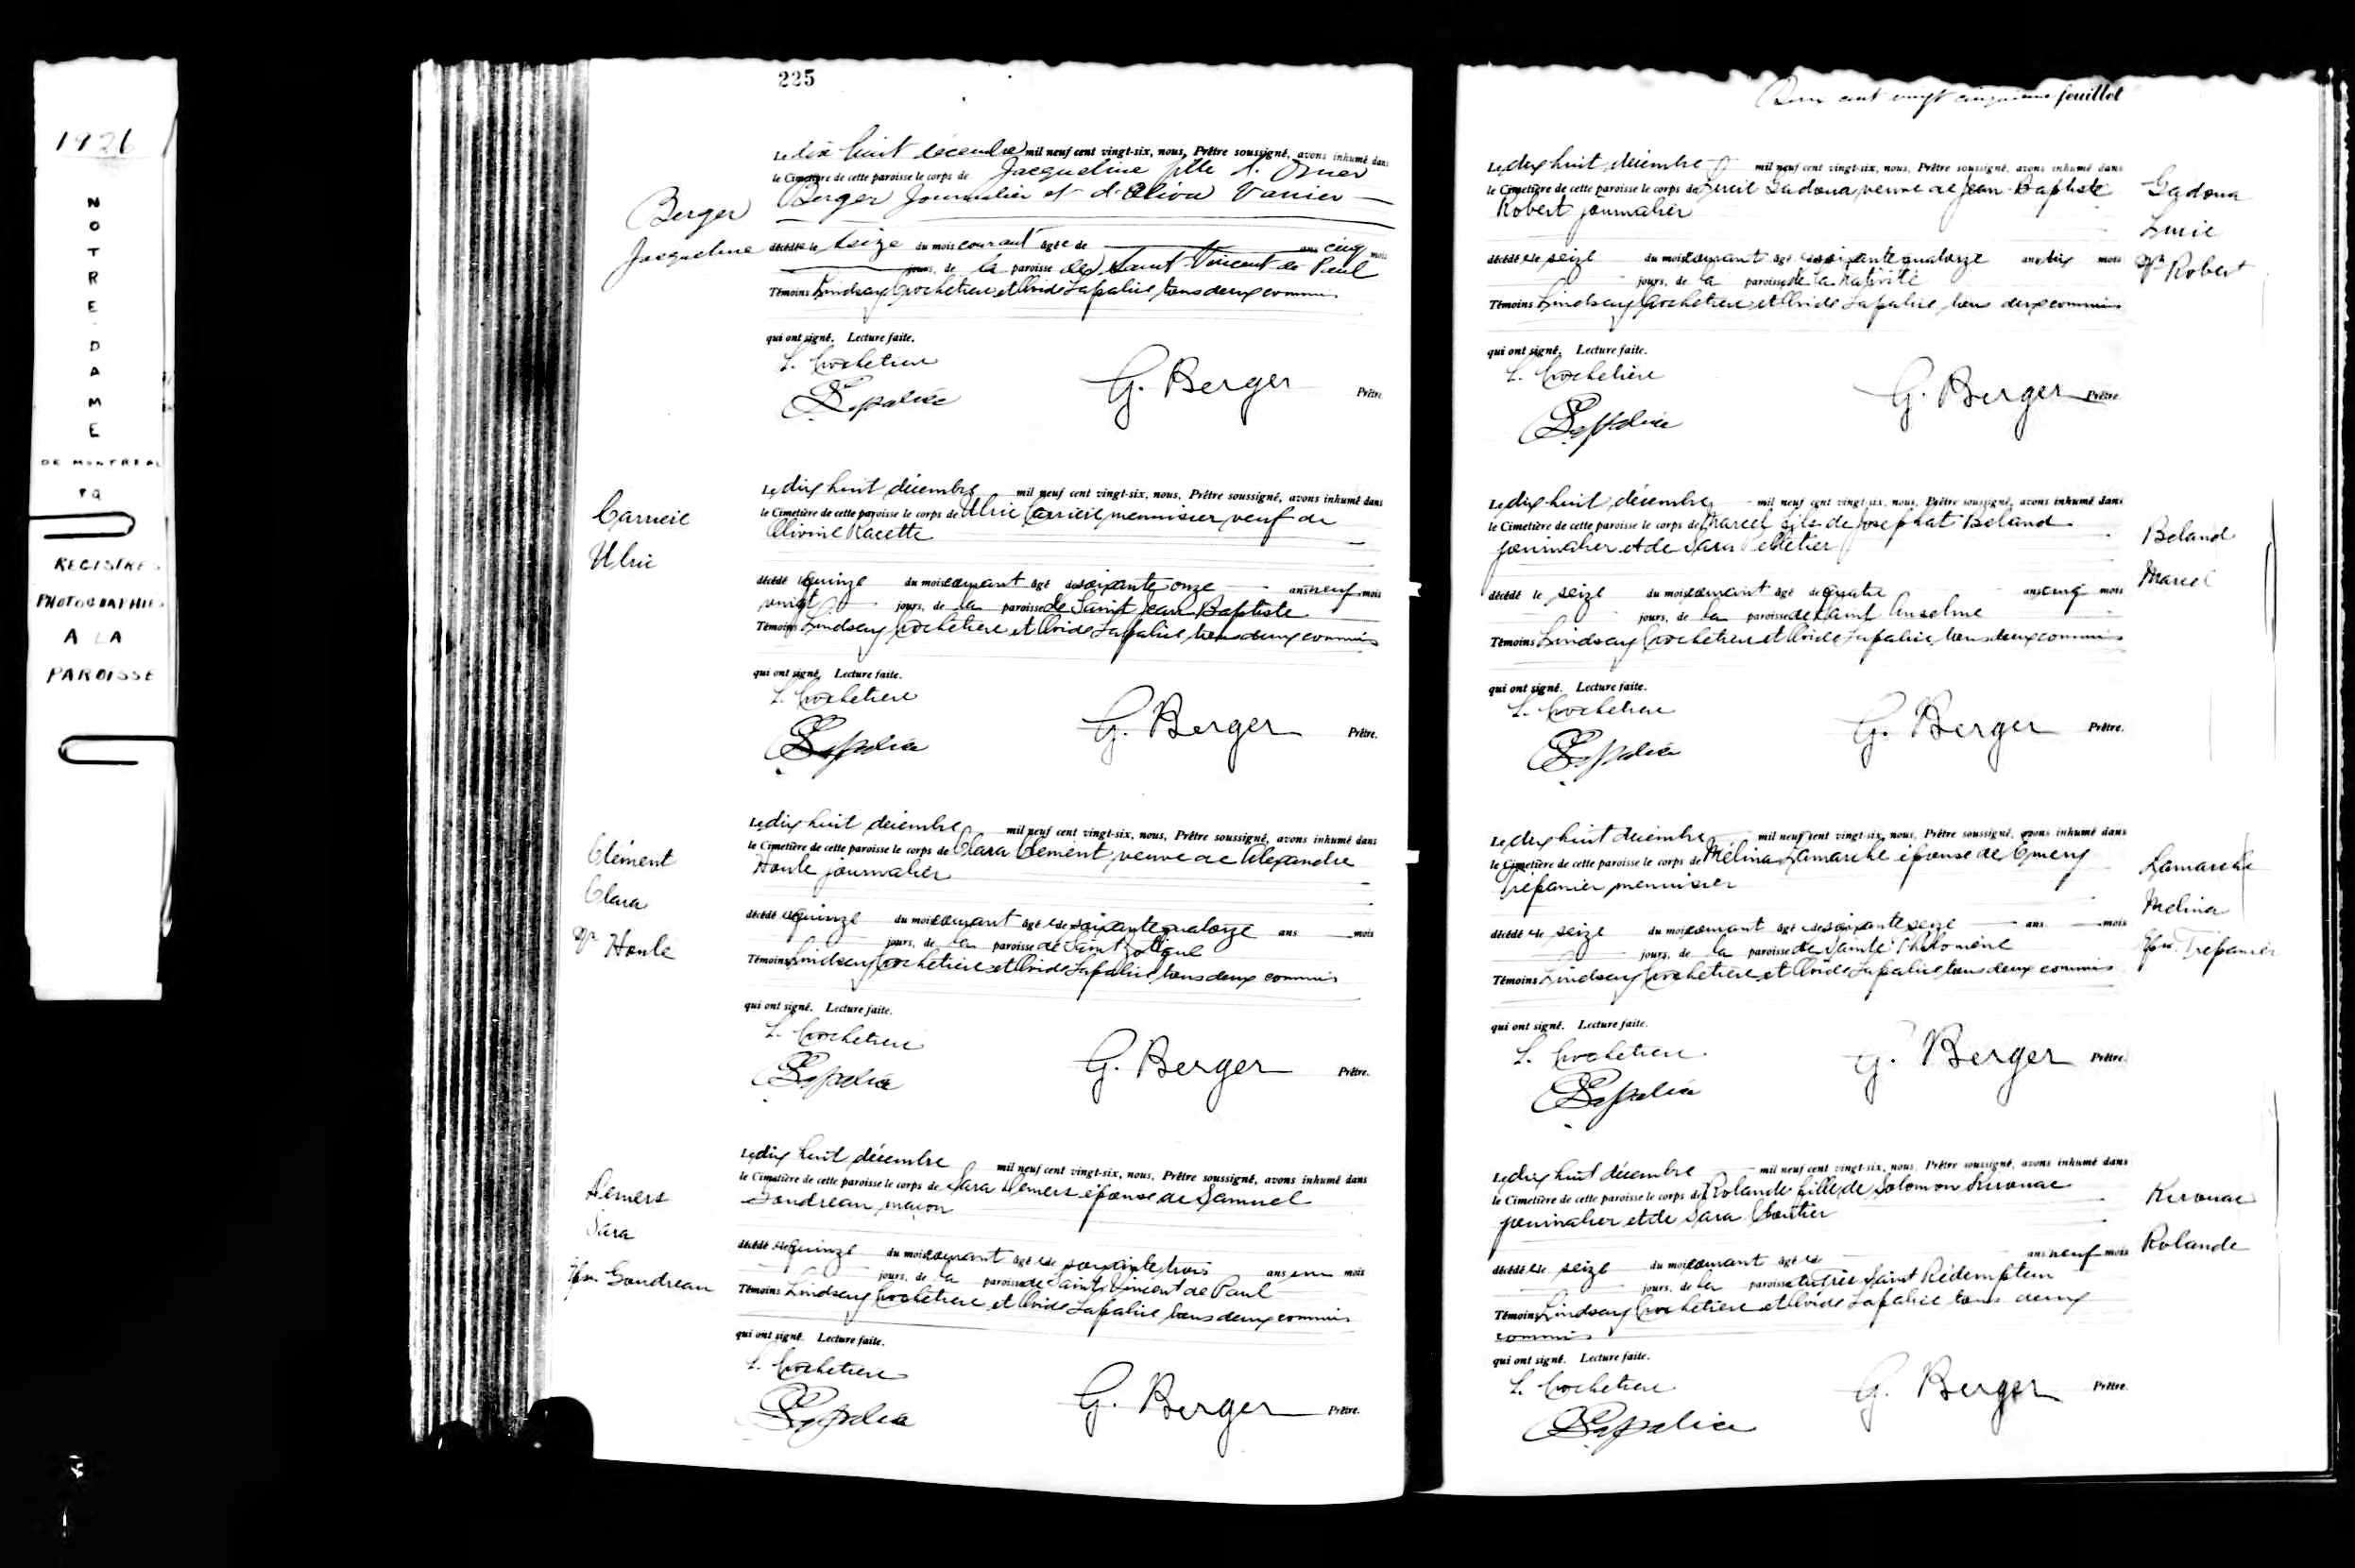 1926
NOTRE-DAME
DE MONTREAL
PQ
REGISTRES
PHOTOGRAPHIES
A LA
PAROISSE
225
Berger
Jacqueline
Le dix huit décembre mil neuf cent vingt-six, nous, Prêtre soussigné, avons inhumé dans
le Cimetière de cette paroisse le corps de Jacqueline fille d'
Berger journalier et d'Oliva Vanier
décédée le seize du mois courant âgée de ans cinq mois
jours, de la paroisse de Saint Vincent de Paul
Témoins Lindsay Crochetiere et Ovide Lapalice tous deux commis
qui ont signé. Lecture faite.
L. Crochetiere
Lapalice
G. Berger Prêtre.
Carrieie
Ulric
Le dix huit décembre mil neuf cent vingt-six, nous, Prêtre soussigné, avons inhumé dans
le Cimetière de cette paroisse le corps de Ulric menuisier, veuf de
Racette
décédé le quinze du mois courant âgé de soixante onze ans neuf mois
vingt jours, de la paroisse de Saint Jean Baptiste
Témoins Lindsay Crochetiere et Ovide Lapalice tous deux commis
qui ont signé. Lecture faite.
L. Crochetiere
Lapalice
G. Berger Prêtre.
Clément
Clara
Vve Houle
Le dix huit décembre mil neuf cent vingt-six, nous, Prêtre soussigné, avons inhumé dans
le Cimetière de cette paroisse le corps de Clara Clément, veuve de Alexandre
Houle journalier
décédé le quinze du mois courant âgé de soixante quatorze ans mois
jours, de la paroisse de Saint Zotique
Témoins Lindsay Crochetiere et Ovide Lapalice tous deux commis
qui ont signé. Lecture faite.
L. Crochetiere
Lapalice
G. Berger Prêtre.
Demers
Sara
Eps. Goudreau
Le dix huit décembre mil neuf cent vingt-six, nous, Prêtre soussigné, avons inhumé dans
le Cimetière de cette paroisse le corps de Sara Demers épouse de Samuel
Goudreau, maçon
décédé le quinze du mois courant âgé de soixante trois ans un mois
jours, de la paroisse de Saint Vincent de Paul
Témoins Lindsay Crochetiere et Ovide Lapalice tous deux commis
qui ont signé. Lecture faite.
L. Crochetiere
Lapalice
G. Berger Prêtre.
Deux cent vingt cinquième feuillet
Le dix huit décembre mil neuf cent vingt-six, nous, Prêtre soussigné, avons inhumé dans
le Cimetière de cette paroisse le corps de Lucie Gadoua, veuve de Jean-Baptiste
Robert journalier
décédé le seize du mois courant âgé de soixante quatorze ans dix mois
jours, de la paroisse de la Nativité
Témoins Lindsay Crochetiere et Ovide Lapalice tous deux commis
qui ont signé. Lecture faite.
L. Crochetiere
Lapalice
G. Berger Prêtre.
Gadoua
Lucie
Vve Robert
Le dix huit décembre mil neuf cent vingt-six, nous, Prêtre soussigné, avons inhumé dans
le Cimetière de cette paroisse le corps de Marcel fils de Josephat Beland
journalier et de Sara Pelletier
décédé le seize du mois courant âgé de quatre ans cinq mois
jours, de la paroisse de Saint Anselme
Témoins Lindsay Crochetiere et Ovide Lapalice tous deux commis
qui ont signé. Lecture faite.
L. Crochetiere
Lapalice
G. Berger Prêtre.
Beland
Marcel
Le dix huit décembre mil neuf cent vingt-six, nous, Prêtre soussigné, avons inhumé dans
le Cimetière de cette paroisse le corps de Mélina Lamarche épouse de Emery
Trepanier menuisier
décédé le seize du mois courant âgé de soixante seize ans mois
jours, de la paroisse de Sainte Philomène
Témoins Lindsay Crochetiere et Ovide Lapalice tous deux commis
qui ont signé. Lecture faite.
L. Crochetiere
Lapalice
G. Berger Prêtre.
Lamarche
Melina
Eps. Trépanier
Le dix huit décembre mil neuf cent vingt-six, nous, Prêtre soussigné, avons inhumé dans
le Cimetière de cette paroisse le corps de Rolande fille de Solomon Kirouac
journalier et de Sara Cloutier
décédé le seize du mois courant âgé de ans neuf mois
jours, de la paroisse du Très Saint Rédempteur
Témoins Lindsay Crochetiere et Ovide Lapalice tous deux
commis
qui ont signé. Lecture faite.
L. Crochetiere
Lapalice
G. Berger Prêtre.
Kirouac
Rolande